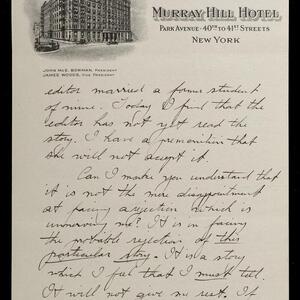 MURRAY HILL HOTEL
PARK AVENUE · 40TH TO 41ST STREETS
NEW YORK
JOHN McE. BOWMAN, PRESIDENT
JAMES WOODS, VICE PRESIDENT
editor married a former student
of mine. Today I find that the
editor has not yet read the
story. I have a premonition that
she will not accept it.
Can I make you understand that
it is not the mere disappointment
at facing a rejection which is
unnerving me? It is in facing
the probable rejection of this
particular story. It is a story
which I feel that I must tell.
It will not give me rest. If